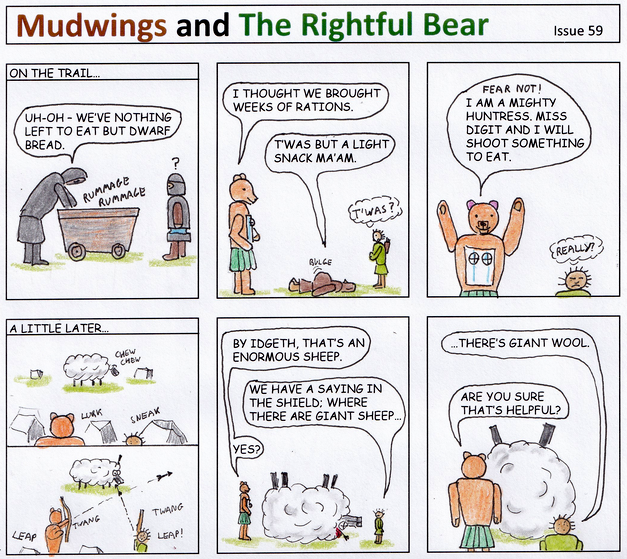 Mudwings and The Rightful Bear
Issue 59
ON THE TRAIL...
UH-OH - WE'VE NOTHING
LEFT TO EAT BUT DWARF
BREAD.
RUMMAGE
RUMMAGE
?
I THOUGHT WE BROUGHT
WEEKS OF RATIONS.
T'WAS BUT A LIGHT
SNACK MA'AM.
T'WAS?
BULGE
FEAR NOT!
I AM A MIGHTY
HUNTRESS. MISS
DIGIT AND I WILL
SHOOT SOMETHING
TO EAT.
REALLY?
A LITTLE LATER...
CHEW
CHEW
LURK
SNEAK
TWANG
TWANG
LEAP
LEAP!
BY IDGETH, THAT'S AN
ENORMOUS SHEEP.
WE HAVE A SAYING IN
THE SHIELD; WHERE
THERE ARE GIANT SHEEP...
YES?
...THERE'S GIANT WOOL.
ARE YOU SURE
THAT'S HELPFUL?